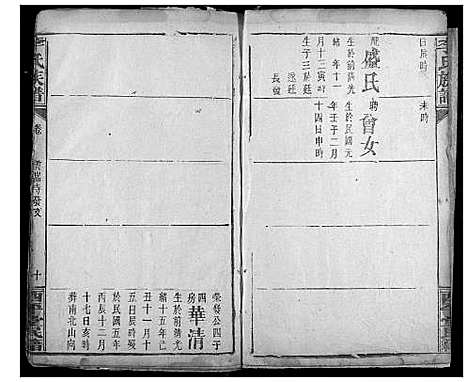 李氏族譜
日辰時
未時
配
盛氏
生於前清光
緒年十一
月十三寅時
生子三於莚
遂莚
長俊
聘
曾女
生於民國元
年壬子二月
十四日申時
氏族譜
卷
十
榮發公四子
四房
華清
生於前清光
緒十五年己
丑十一月十
五日辰時歿
於民國五年
丙辰十二月
十七日亥時
葬南北山向